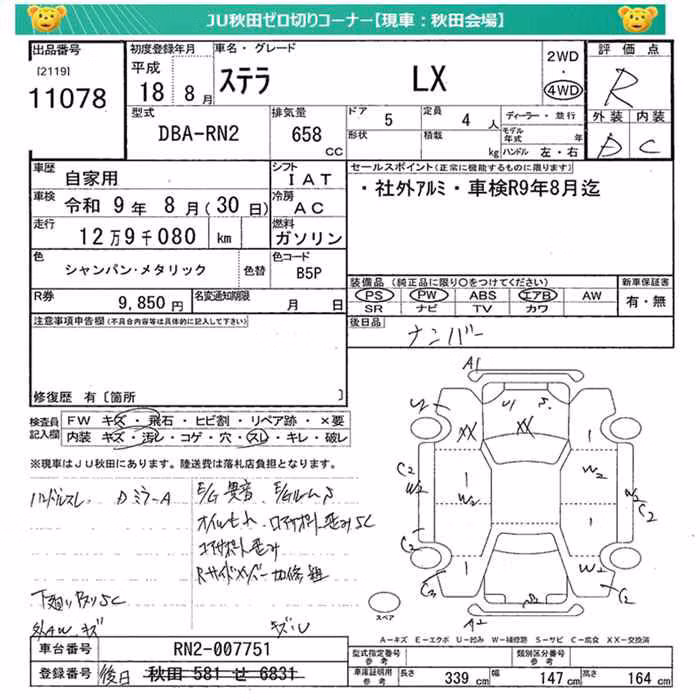 JU秋田ゼロ切りコーナー【現車：秋田会場】
出品番号
[2119]
11078
初度登録年月
平成
18 8月
車名・グレード
ステラ LX
2WD
・
4WD
評価点
R
外装 内装
D C
型式
DBA-RN2
排気量
658 cc
ドア 5
形状
定員 4 人
積載 kg
ディーラー・並行
モデル年式 年
ハンドル 左・右
車歴 自家用
シフト IAT
車検 令和 9年 8月(30日)
冷房 AC
走行 12万9千080 km
燃料 ガソリン
色 シャンパン・メタリック 色替
色コード B5P
R券 9,850円
名変通知期限 月 日
セールスポイント(正常に機能するものに限ります)
・社外アルミ・車検R9年8月迄
装備品(純正品に限り〇をつけてください)
PS PW ABS エアB AW
SR ナビ TV カワ
新車保証書
有・無
後日品
ナンバー
注意事項申告欄(不具合内容等は具体的に記入して下さい)
修復歴 有〔箇所 〕
検査員記入欄
FW キズ・飛石・ヒビ割・リペア跡・×要
内装 キズ・汚レ・コゲ・穴・スレ・キレ・破レ
※現車はJU秋田にあります。陸送費は落札店負担となります。
ハンドルスレ DミラーA E/G異音
下廻りサビSC
キズU
A1
U
U1
S
XX
XX
C2
W2
W2
W2
W2
C2
C2
C3
1
1
1
1
W2
C2
A2
スペア
A－キズ E－エクボ U－凹み W－補修跡 S－サビ C－腐食 XX－交換済
車台番号 RN2-007751
登録番号 後日 秋田 581 せ 6831
型式指定番号
参考
類別区分番号
参考
車庫証明用
参考
長さ 339 cm
幅 147 cm
高さ 164 cm